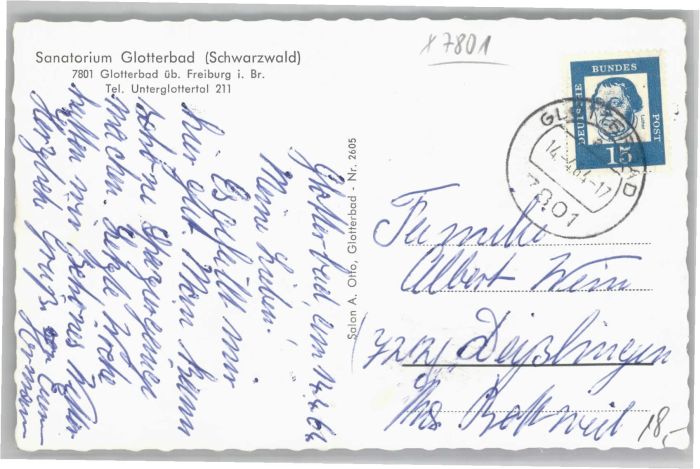 Sanatorium Glotterbad (Schwarzwald)
7801 Glotterbad üb. Freiburg i. Br.
Tel. Unterglottertal 211
x 7801
DEUTSCHE BUNDES POST
15
GLOTTERBAD
14.-4.64-17
7801
Salon A. Otto, Glotterbad - Nr. 2605
Glotterbad, am 14.4.64
Meine Lieben!
Es gefällt mir
hier gut. Man kann
schöne Spaziergänge
machen. Letzte Woche
hatten wir
Herzliche Grüße
Hermann
Familie
Albert
7221 Deißlingen
Krs. Rottweil
18,-